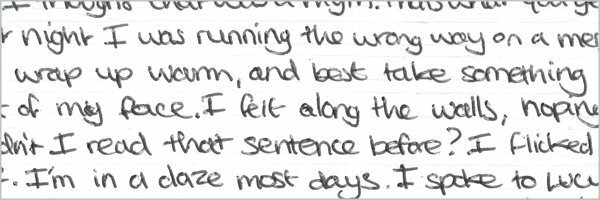 I thought that was a night. That's what
r night I was running the wrong way on a mes
wrap up warm, and best take something
t of my face. I felt along the walls, hoping
dn't I read that sentence before? I flicked
. I'm in a daze most days. I spoke to Luc